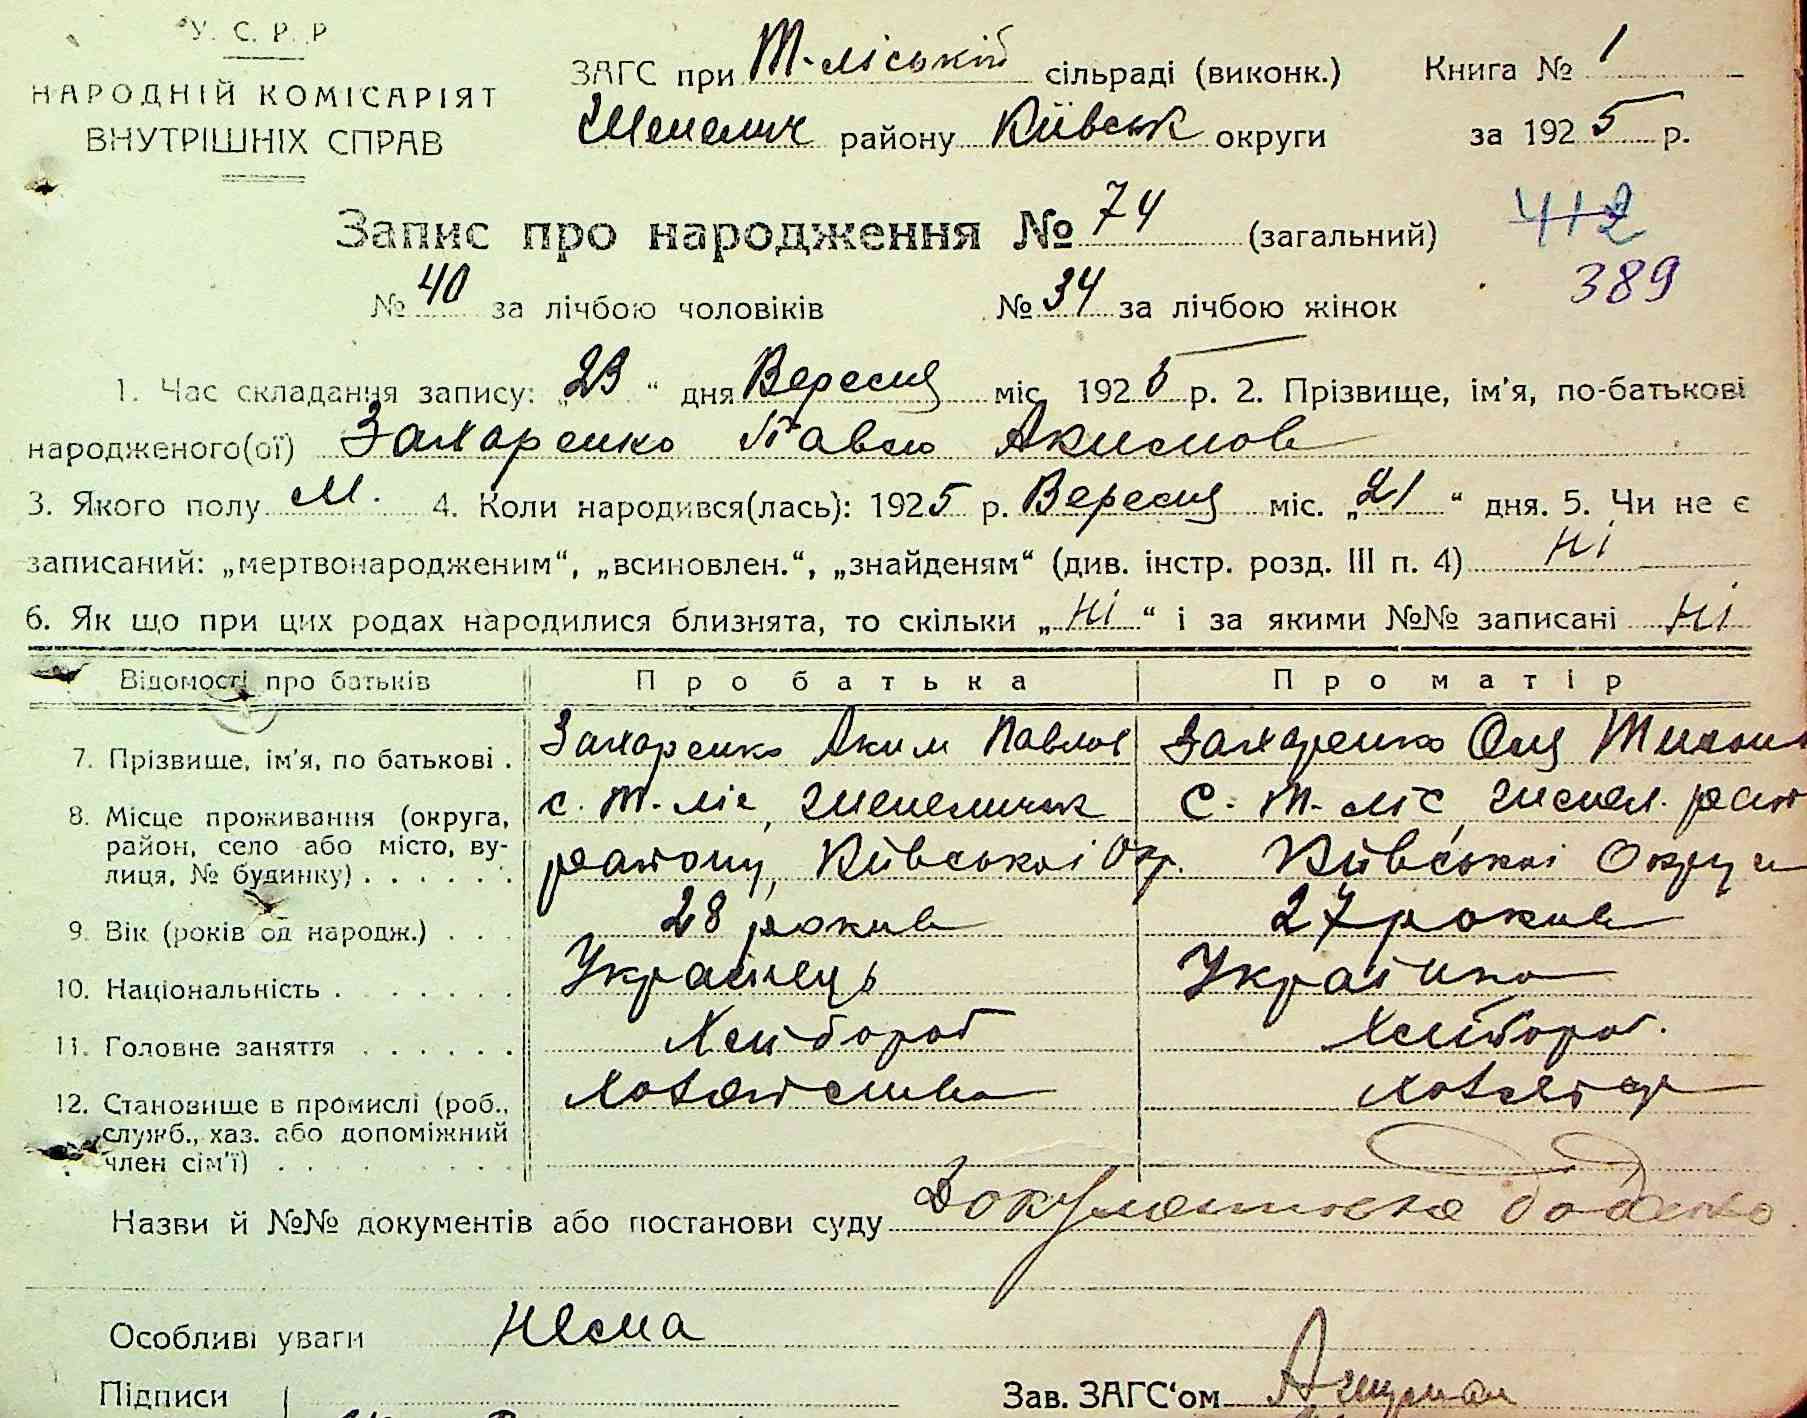 У. С. Р. Р
НАРОДНІЙ КОМІСАРІЯТ
ВНУТРІШНІХ СПРАВ
ЗАГС при Т-ліській сільраді (виконк.) Книга № 1
Шепелич району Київськ округи за 1925 р.
Запис про народження № 74 (загальний) 412
№ 40 за лічбою чоловіків № 34 за лічбою жінок 389
1. Час складання запису: „23“ дня Вересня міс. 1925 р. 2. Прізвище, ім'я, по-батькові
народженого(ої) Захаренко Павло Акимов
3. Якого полу М. 4. Коли народився(лась): 1925 р. Вересня міс. „21“ дня. 5. Чи не є
записаний: „мертвонародженим“, „всиновлен.“, „знайденям“ (див. інстр. розд. III п. 4) Ні
6. Як що при цих родах народилися близнята, то скільки „Ні“ і за якими №№ записані Ні
Відомості про батьків Про батька Про матір
7. Прізвище, ім'я, по батькові . Захаренко Аким Павлов Захаренко Оля Тихон
8. Місце проживання (округа, с. Т-ліс, Шепелицьк С. Т-ліс, Шепел. район
район, село або місто, ву-
лиця, № будинку) . . . . . . району, Київської Окр. Київської Округи
9. Вік (років од народж.) . . . 28 років 27 років
10. Національність . . . . . . . Українець Українка
11. Головне заняття . . . . . . Хлібороб Хлібороб.
12. Становище в промислі (роб., Хозяйства
служб., хаз. або допоміжний
член сім'ї) . . . . . . . . .
Назви й №№ документів або постанови суду
Особливі уваги Нема
Підписи Зав. ЗАГС‘ом